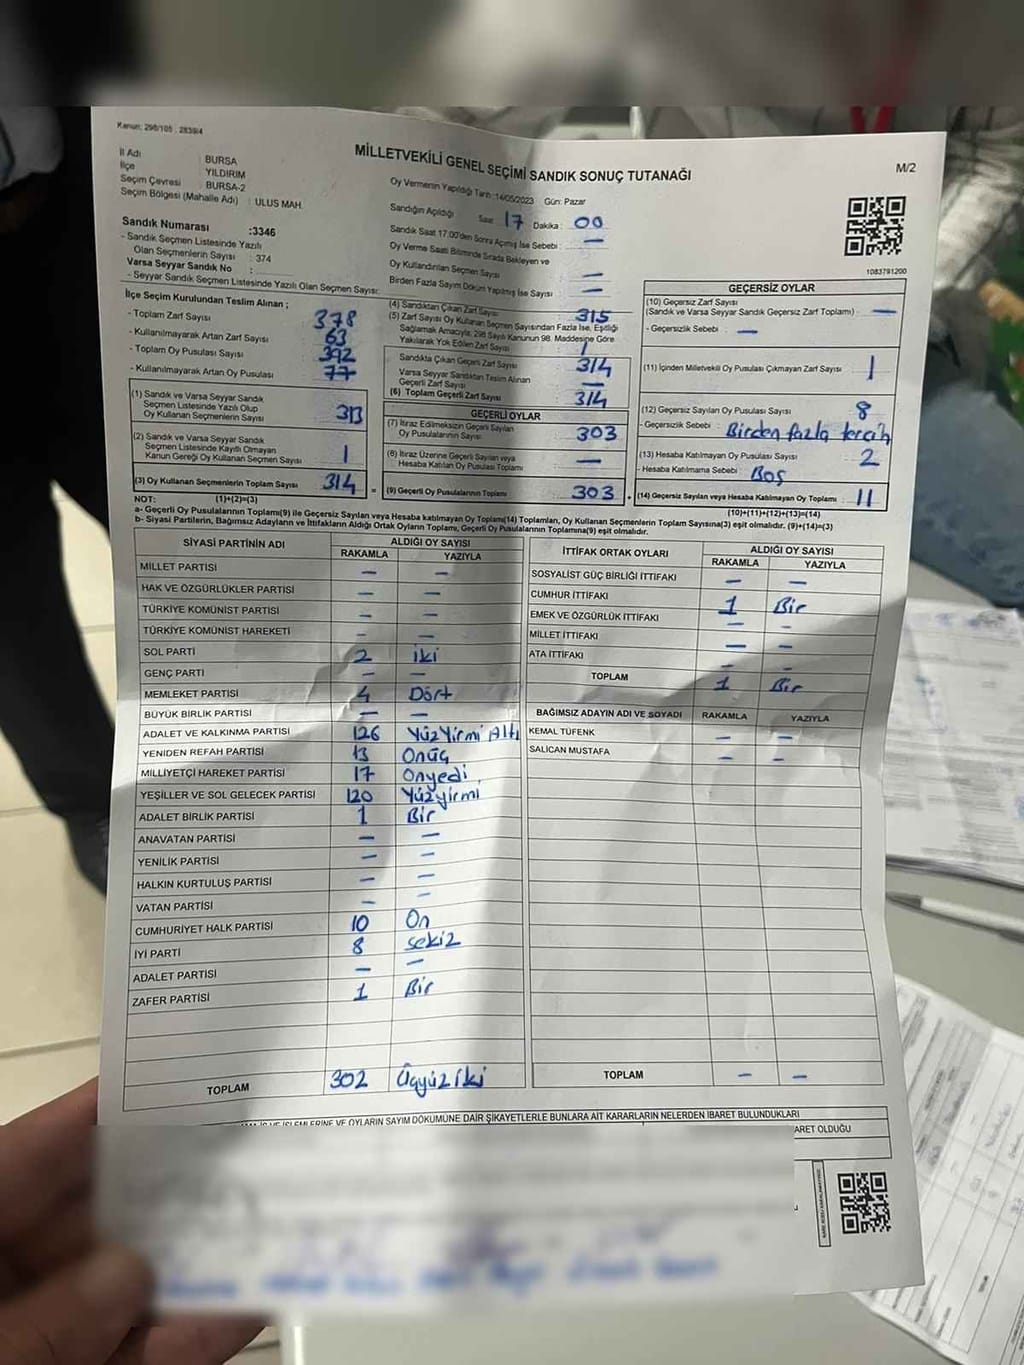 Kanun: 298/105 : 2839/4
MİLLETVEKİLİ GENEL SEÇİMİ SANDIK SONUÇ TUTANAĞI
M/2
İl Adı : BURSA
İlçe : YILDIRIM
Seçim Çevresi : BURSA-2
Seçim Bölgesi (Mahalle Adı) : ULUS MAH.
Sandık Numarası :3346
- Sandık Seçmen Listesinde Yazılı
Olan Seçmenlerin Sayısı : 374
Varsa Seyyar Sandık No :
- Seyyar Sandık Seçmen Listesinde Yazılı Olan Seçmen Sayısı:
Oy Vermenin Yapıldığı Tarih :14/05/2023 Gün: Pazar
Sandığın Açıldığı Saat 17 Dakika : 00
Sandık Saat 17.00'den Sonra Açılmış İse Sebebi : —
Oy Verme Saati Bitiminde Sırada Bekleyen ve
Oy Kullandırılan Seçmen Sayısı —
Birden Fazla Sayım Döküm Yapılmış İse Sayısı : —
1083791200
İlçe Seçim Kurulundan Teslim Alınan ;
- Toplam Zarf Sayısı 378
- Kullanılmayarak Artan Zarf Sayısı 63
- Toplam Oy Pusulası Sayısı 392
- Kullanılmayarak Artan Oy Pusulası 77
(1) Sandık ve Varsa Seyyar Sandık
Seçmen Listesinde Yazılı Olup
Oy Kullanan Seçmenlerin Sayısı 313
(2) Sandık ve Varsa Seyyar Sandık
Seçmen Listesinde Kaydı Olmayan
Kanun Gereği Oy Kullanan Seçmen Sayısı 1
(3) Oy Kullanan Seçmenlerin Toplam Sayısı 314
(4) Sandıktan Çıkan Zarf Sayısı 315
(5) Zarf Sayısı Oy Kullanan Seçmen Sayısından Fazla İse, Eşitliği
Sağlamak Amacıyla, 298 Sayılı Kanunun 98. Maddesine Göre
Yakılarak Yok Edilen Zarf Sayısı 1
Sandıkta Çıkan Geçerli Zarf Sayısı 314
Varsa Seyyar Sandıktan Teslim Alınan
Geçerli Zarf Sayısı —
(6) Toplam Geçerli Zarf Sayısı 314
GEÇERLİ OYLAR
(7) İtiraz Edilmeksizin Geçerli Sayılan
Oy Pusulalarının Sayısı 303
(8) İtiraz Üzerine Geçerli Sayılan veya
Hesaba Katılan Oy Pusulası Toplamı —
= (9) Geçerli Oy Pusulalarının Toplamı 303
GEÇERSİZ OYLAR
(10) Geçersiz Zarf Sayısı
(Sandık ve Varsa Seyyar Sandık Geçersiz Zarf Toplamı) : —
- Geçersizlik Sebebi : —
(11) İçinden Milletvekili Oy Pusulası Çıkmayan Zarf Sayısı 1
(12) Geçersiz Sayılan Oy Pusulası Sayısı 8
- Geçersizlik Sebebi : Birden fazla tercih
(13) Hesaba Katılmayan Oy Pusulası Sayısı 2
- Hesaba Katılmama Sebebi : Boş
(14) Geçersiz Sayılan veya Hesaba Katılmayan Oy Toplamı 11
NOT: (1)+(2)=(3)
(10)+(11)+(12)+(13)=(14)
a- Geçerli Oy Pusulalarının Toplamı(9) ile Geçersiz Sayılan veya Hesaba katılmayan Oy Toplamı(14) Toplamları, Oy Kullanan Seçmenlerin Toplam Sayısına(3) eşit olmalıdır. (9)+(14)=(3)
b- Siyasi Partilerin, Bağımsız Adayların ve İttifakların Aldığı Ortak Oyların Toplamı, Geçerli Oy Pusulalarının Toplamına(9) eşit olmalıdır.
SİYASİ PARTİNİN ADI ALDIĞI OY SAYISI
RAKAMLA YAZIYLA
MİLLET PARTİSİ — —
HAK VE ÖZGÜRLÜKLER PARTİSİ — —
TÜRKİYE KOMÜNİST PARTİSİ — —
TÜRKİYE KOMÜNİST HAREKETİ — —
SOL PARTİ 2 iki
GENÇ PARTİ — —
MEMLEKET PARTİSİ 4 Dört
BÜYÜK BİRLİK PARTİSİ — —
ADALET VE KALKINMA PARTİSİ 126 Yüzyirmi Altı
YENİDEN REFAH PARTİSİ 13 Onüç
MİLLİYETÇİ HAREKET PARTİSİ 17 Onyedi
YEŞİLLER VE SOL GELECEK PARTİSİ 120 Yüzyirmi
ADALET BİRLİK PARTİSİ 1 Bir
ANAVATAN PARTİSİ — —
YENİLİK PARTİSİ — —
HALKIN KURTULUŞ PARTİSİ — —
VATAN PARTİSİ — —
CUMHURİYET HALK PARTİSİ 10 On
İYİ PARTİ 8 sekiz
ADALET PARTİSİ — —
ZAFER PARTİSİ 1 Bir
TOPLAM 302 Üçyüziki
İTTİFAK ORTAK OYLARI ALDIĞI OY SAYISI
RAKAMLA YAZIYLA
SOSYALİST GÜÇ BİRLİĞİ İTTİFAKI — —
CUMHUR İTTİFAKI 1 Bir
EMEK VE ÖZGÜRLÜK İTTİFAKI — —
MİLLET İTTİFAKI — —
ATA İTTİFAKI — —
TOPLAM 1 Bir
BAĞIMSIZ ADAYIN ADI VE SOYADI RAKAMLA YAZIYLA
KEMAL TÜFENK — —
SALİCAN MUSTAFA — —
TOPLAM — —
VE OYLARIN SAYIM DÖKÜMÜNE DAİR ŞİKAYETLERLE BUNLARA AİT KARARLARIN NELERDEN İBARET BULUNDUKLARI
ARET OLDUĞU